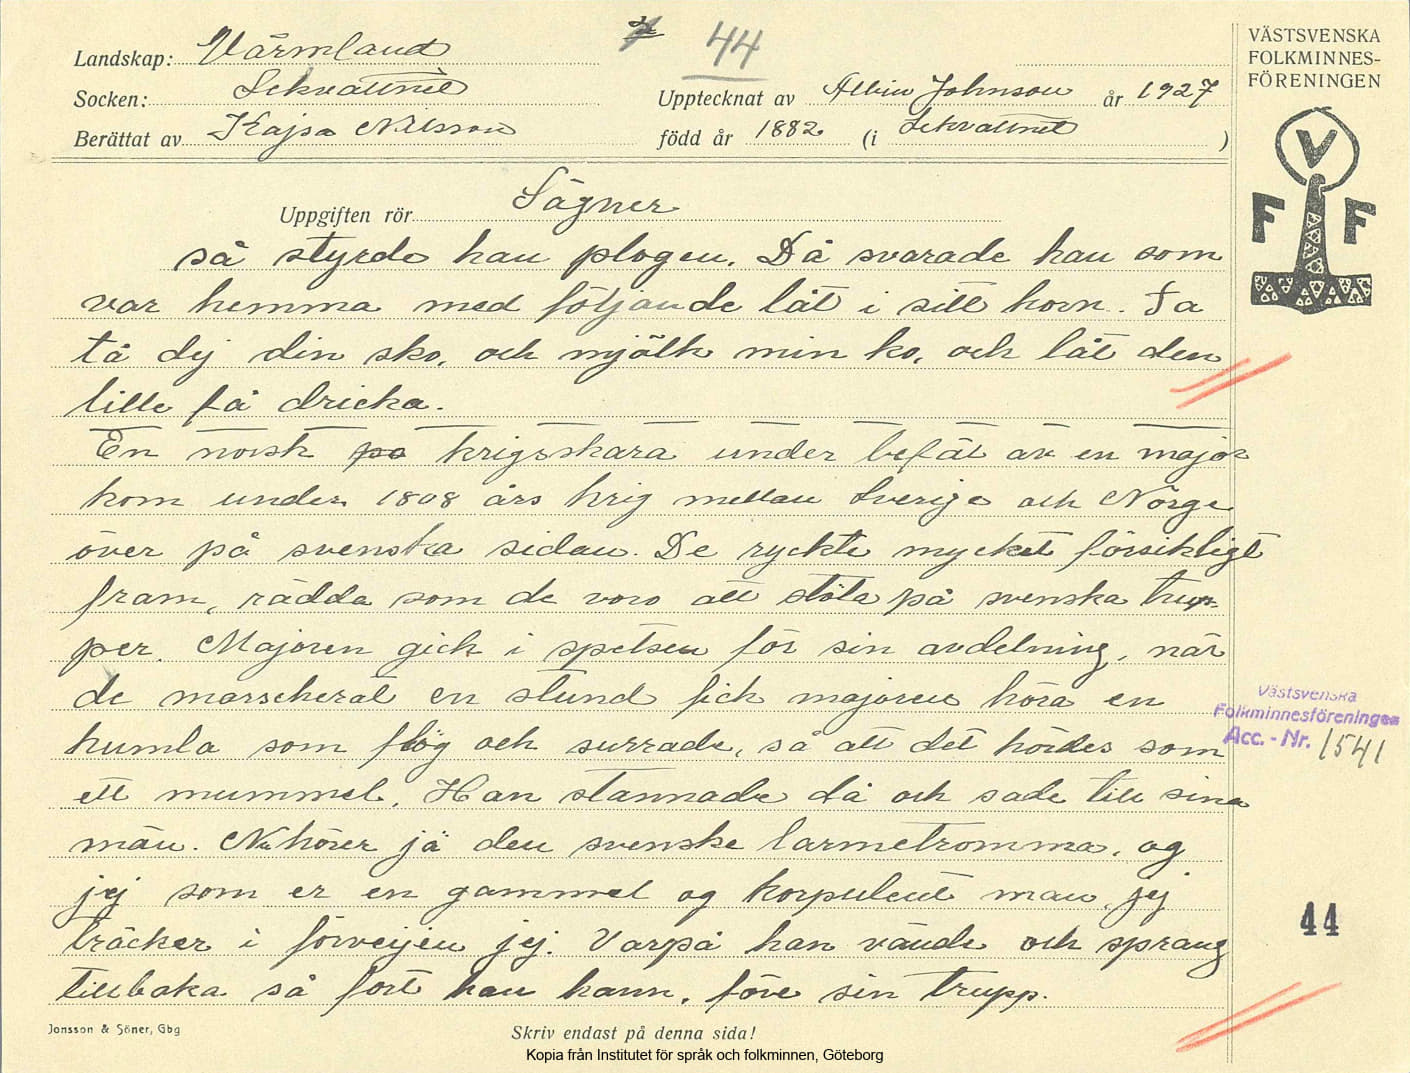 44
Landskap: Värmland
Socken: Lekvattnet
Berättat av Kajsa Nilsson
Upptecknat av Albin Johnson år 1927
född år 1882. (i Lekvattnet )
VÄSTSVENSKA
FOLKMINNES-
FÖRENINGEN
V
F F
Uppgiften rör Sägner
så styrde han plogen. Då svarade han som
var hemma med följande låt i sitt horn. Ta
tå dej din sko, och mjölk min ko, och låt den
lille få dricka.
En norsk krigsskara under befäl av en major
kom under 1808 års krig mellan Sverige och Norge
över på svenska sidan. De ryckte mycket försiktigt
fram, rädda som de voro att stöta på svenska trup-
per. Majoren gick i spetsen för sin avdelning, när
de marscherat en stund fick majoren höra en
humla som flög och surrade, så att det hördes som
ett mummel. Han stannade då och sade till sina
män. Nu hörer jä den svenske larmetromma, og
jej som er en gammel og korpulent man, jej
träcker i förveijen jej. Varpå han vände och sprang
tillbaka så fort han hann, före sin trupp.
Västsvenska
Folkminnesföreningen
Acc. - Nr. 1541
44
Jonsson & Söner, Gbg
Skriv endast på denna sida!
Kopia från Institutet för språk och folkminnen, Göteborg